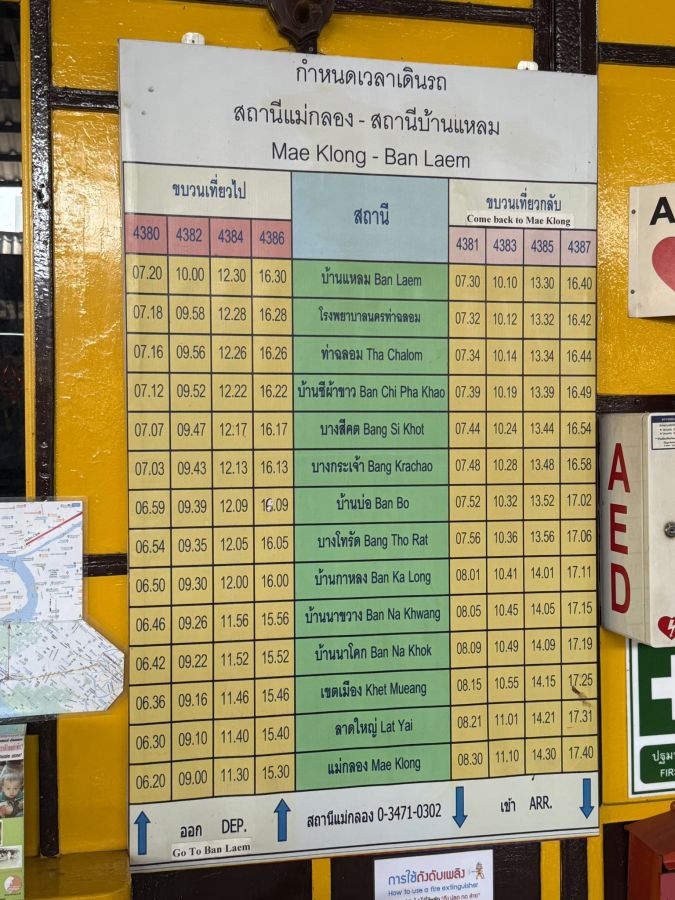 กำหนดเวลาเดินรถ
สถานีแม่กลอง - สถานีบ้านแหลม
Mae Klong - Ban Laem
ขบวนเที่ยวไป สถานี ขบวนเที่ยวกลับ
Come back to Mae Klong
4380 4382 4384 4386 4381 4383 4385 4387
07.20 10.00 12.30 16.30 บ้านแหลม Ban Laem 07.30 10.10 13.30 16.40
07.18 09.58 12.28 16.28 โรงพยาบาลนครท่าฉลอม 07.32 10.12 13.32 16.42
07.16 09.56 12.26 16.26 ท่าฉลอม Tha Chalom 07.34 10.14 13.34 16.44
07.12 09.52 12.22 16.22 บ้านชีผ้าขาว Ban Chi Pha Khao 07.39 10.19 13.39 16.49
07.07 09.47 12.17 16.17 บางสีคต Bang Si Khot 07.44 10.24 13.44 16.54
07.03 09.43 12.13 16.13 บางกระเจ้า Bang Krachao 07.48 10.28 13.48 16.58
06.59 09.39 12.09 16.09 บ้านบ่อ Ban Bo 07.52 10.32 13.52 17.02
06.54 09.35 12.05 16.05 บางโทรัด Bang Tho Rat 07.56 10.36 13.56 17.06
06.50 09.30 12.00 16.00 บ้านกาหลง Ban Ka Long 08.01 10.41 14.01 17.11
06.46 09.26 11.56 15.56 บ้านนาขวาง Ban Na Khwang 08.05 10.45 14.05 17.15
06.42 09.22 11.52 15.52 บ้านนาโคก Ban Na Khok 08.09 10.49 14.09 17.19
06.36 09.16 11.46 15.46 เขตเมือง Khet Mueang 08.15 10.55 14.15 17.25
06.30 09.10 11.40 15.40 ลาดใหญ่ Lat Yai 08.21 11.01 14.21 17.31
06.20 09.00 11.30 15.30 แม่กลอง Mae Klong 08.30 11.10 14.30 17.40
ออก DEP. สถานีแม่กลอง 0-3471-0302 เข้า ARR.
Go To Ban Laem
การใช้ถังดับเพลิง
How to use a fire extinguisher
A
AED
ปฐม
FIR